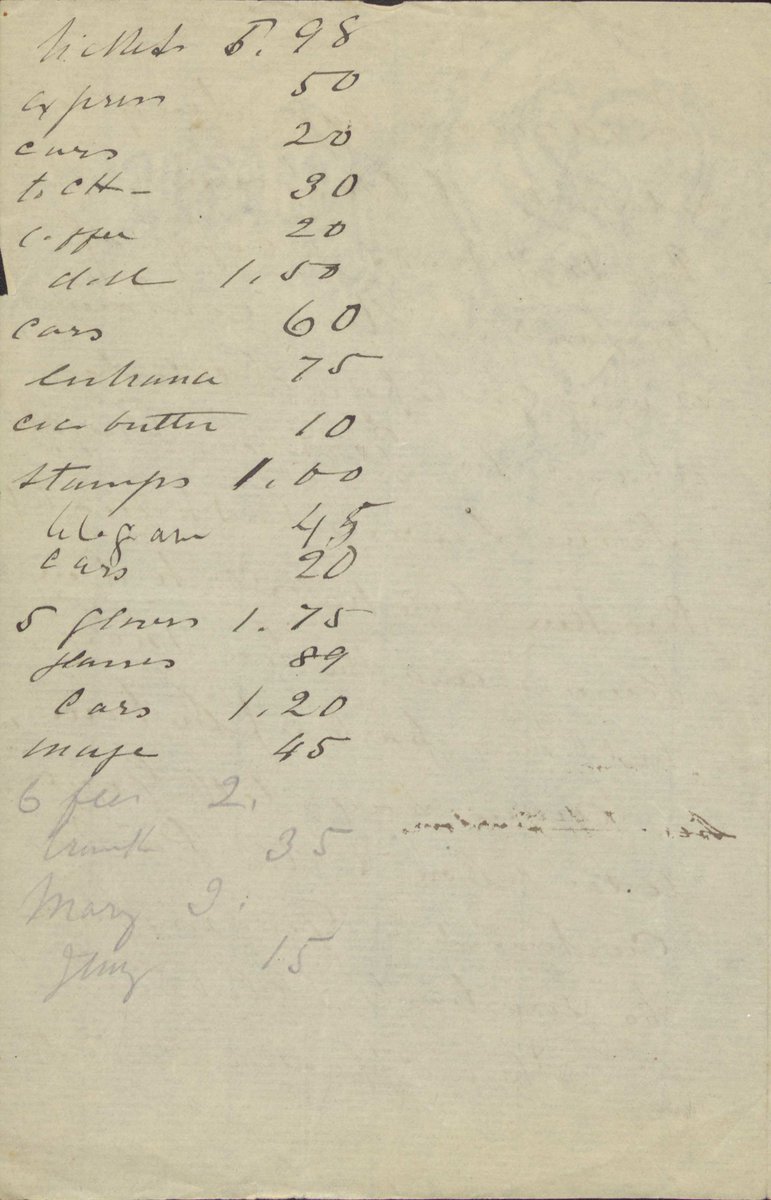 tickets 5.98
express 50
cars 20
to CH - 30
coffee 20
doll 1.50
cars 60
entrance 75
coco butter 10
stamps 1.00
telegram 45
cars 20
5 gloves 1.75
glasses 89
Cars 1.20
45
6 fees 2.
trunk 35
Mary 2.
15